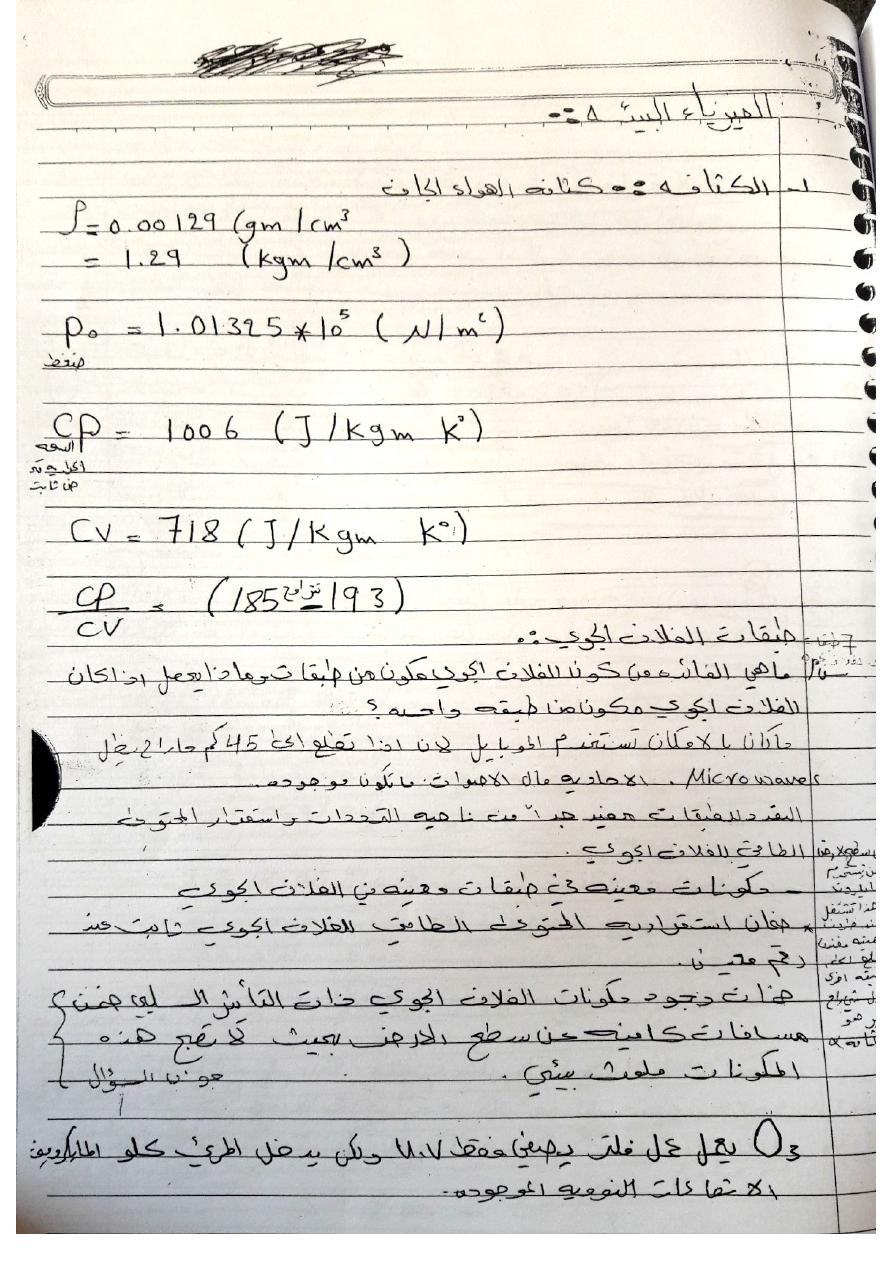 الفيزياء البيئه :-
1- الكثافه :- كثافه الهواء الجاف
ρ = 0.00129 (gm / cm³
= 1.29 (kgm / cm³ )
P₀ = 1.01325 * 10⁵ ( N / m² )
ضغط
CP = 1006 ( J / Kgm K° )
السعه
الحراريه
ض ثابت
CV = 718 ( J / Kgm K° )
CP / CV = ( 185 تتراوح - 193 )
طبقات الغلاف الجوي :-
7 طبقات
س/ ماهي الفائده من كون الغلاف الجوي مكون من طبقات وماذا يحصل اذا كان
الغلاف الجوي مكون من طبقه واحده ؟
ماكان بالامكان تستخدم الموبايل لان اذا تطلع الى 45 كم ماراح يظل
Microwaves . الاحاديه مال الاصوات ماتكون موجوده.
التعدد للطبقات مفيد جداً من ناحيه الترددات واستقرار المحتوى
الطاقي للغلاف الجوي .
- مكونات معينه في طبقات معينه من الغلاف الجوي
* ضمان استقراريه المحتوى الطاقي للغلاف الجوي ثابت عند
رقم معين.
ضمان وجود مكونات الغلاف الجوي ذات التأثير السلبي ضمن
مسافات كافيه عن سطح الارض بحيث لا تصبح هذه
المكونات ملوث بيئي .
جواب السؤال
O₃ يعمل عمل فلتر يصفي فقط U.V ولكن يدخل المرئي كلو المايكرويف
الاشعاعات النوويه الموجوده.